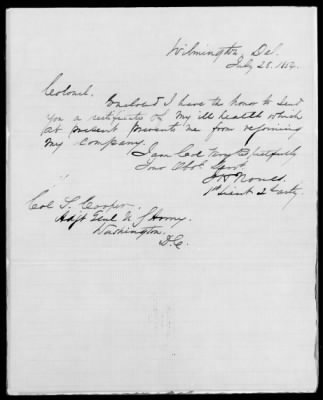 Wilmington, Del.
July 28. 18
Colonel.
Enclosed I have the honor to send
you a certificate of my ill health which
at present prevents me from rejoining
my company.
I am Col Very Respectfully
Your Obt. Servt.
1st Lieut 2 Arty
Col S. Cooper.
Adjt Genl U S Army
Washington
D.C.